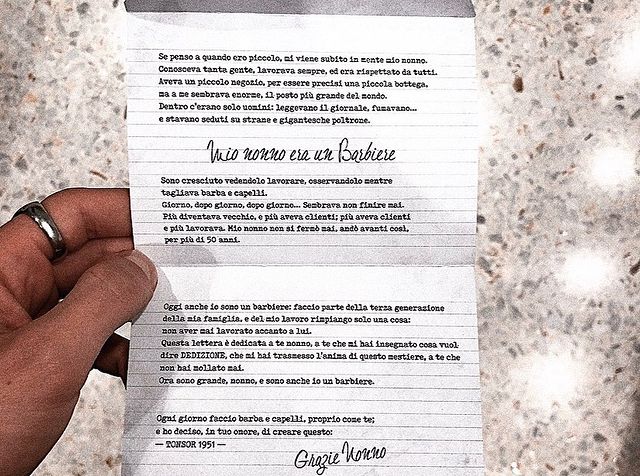 Se penso a quando ero piccolo, mi viene subito in mente mio nonno.
Conosceva tanta gente, lavorava sempre, ed era rispettato da tutti.
Aveva un piccolo negozio, per essere precisi una piccola bottega,
ma a me sembrava enorme, il posto più grande del mondo.
Dentro c'erano solo uomini: leggevano il giornale, fumavano...
e stavano seduti su strane e gigantesche poltrone.
Mio nonno era un Barbiere
Sono cresciuto vedendolo lavorare, osservandolo mentre
tagliava barba e capelli.
Giorno, dopo giorno, dopo giorno... Sembrava non finire mai.
Più diventava vecchio, e più aveva clienti; più aveva clienti
e più lavorava. Mio nonno non si fermò mai, andò avanti così,
per più di 50 anni.
Oggi anche io sono un barbiere: faccio parte della terza generazione
della mia famiglia, e del mio lavoro rimpiango solo una cosa:
non aver mai lavorato accanto a lui.
Questa lettera è dedicata a te nonno, a te che mi hai insegnato cosa vuol
dire DEDIZIONE, che mi hai trasmesso l'anima di questo mestiere, a te che
non hai mollato mai.
Ora sono grande, nonno, e sono anche io un barbiere.
Ogni giorno faccio barba e capelli, proprio come te;
e ho deciso, in tuo onore, di creare questo:
— TONSOR 1951 —
Grazie Nonno